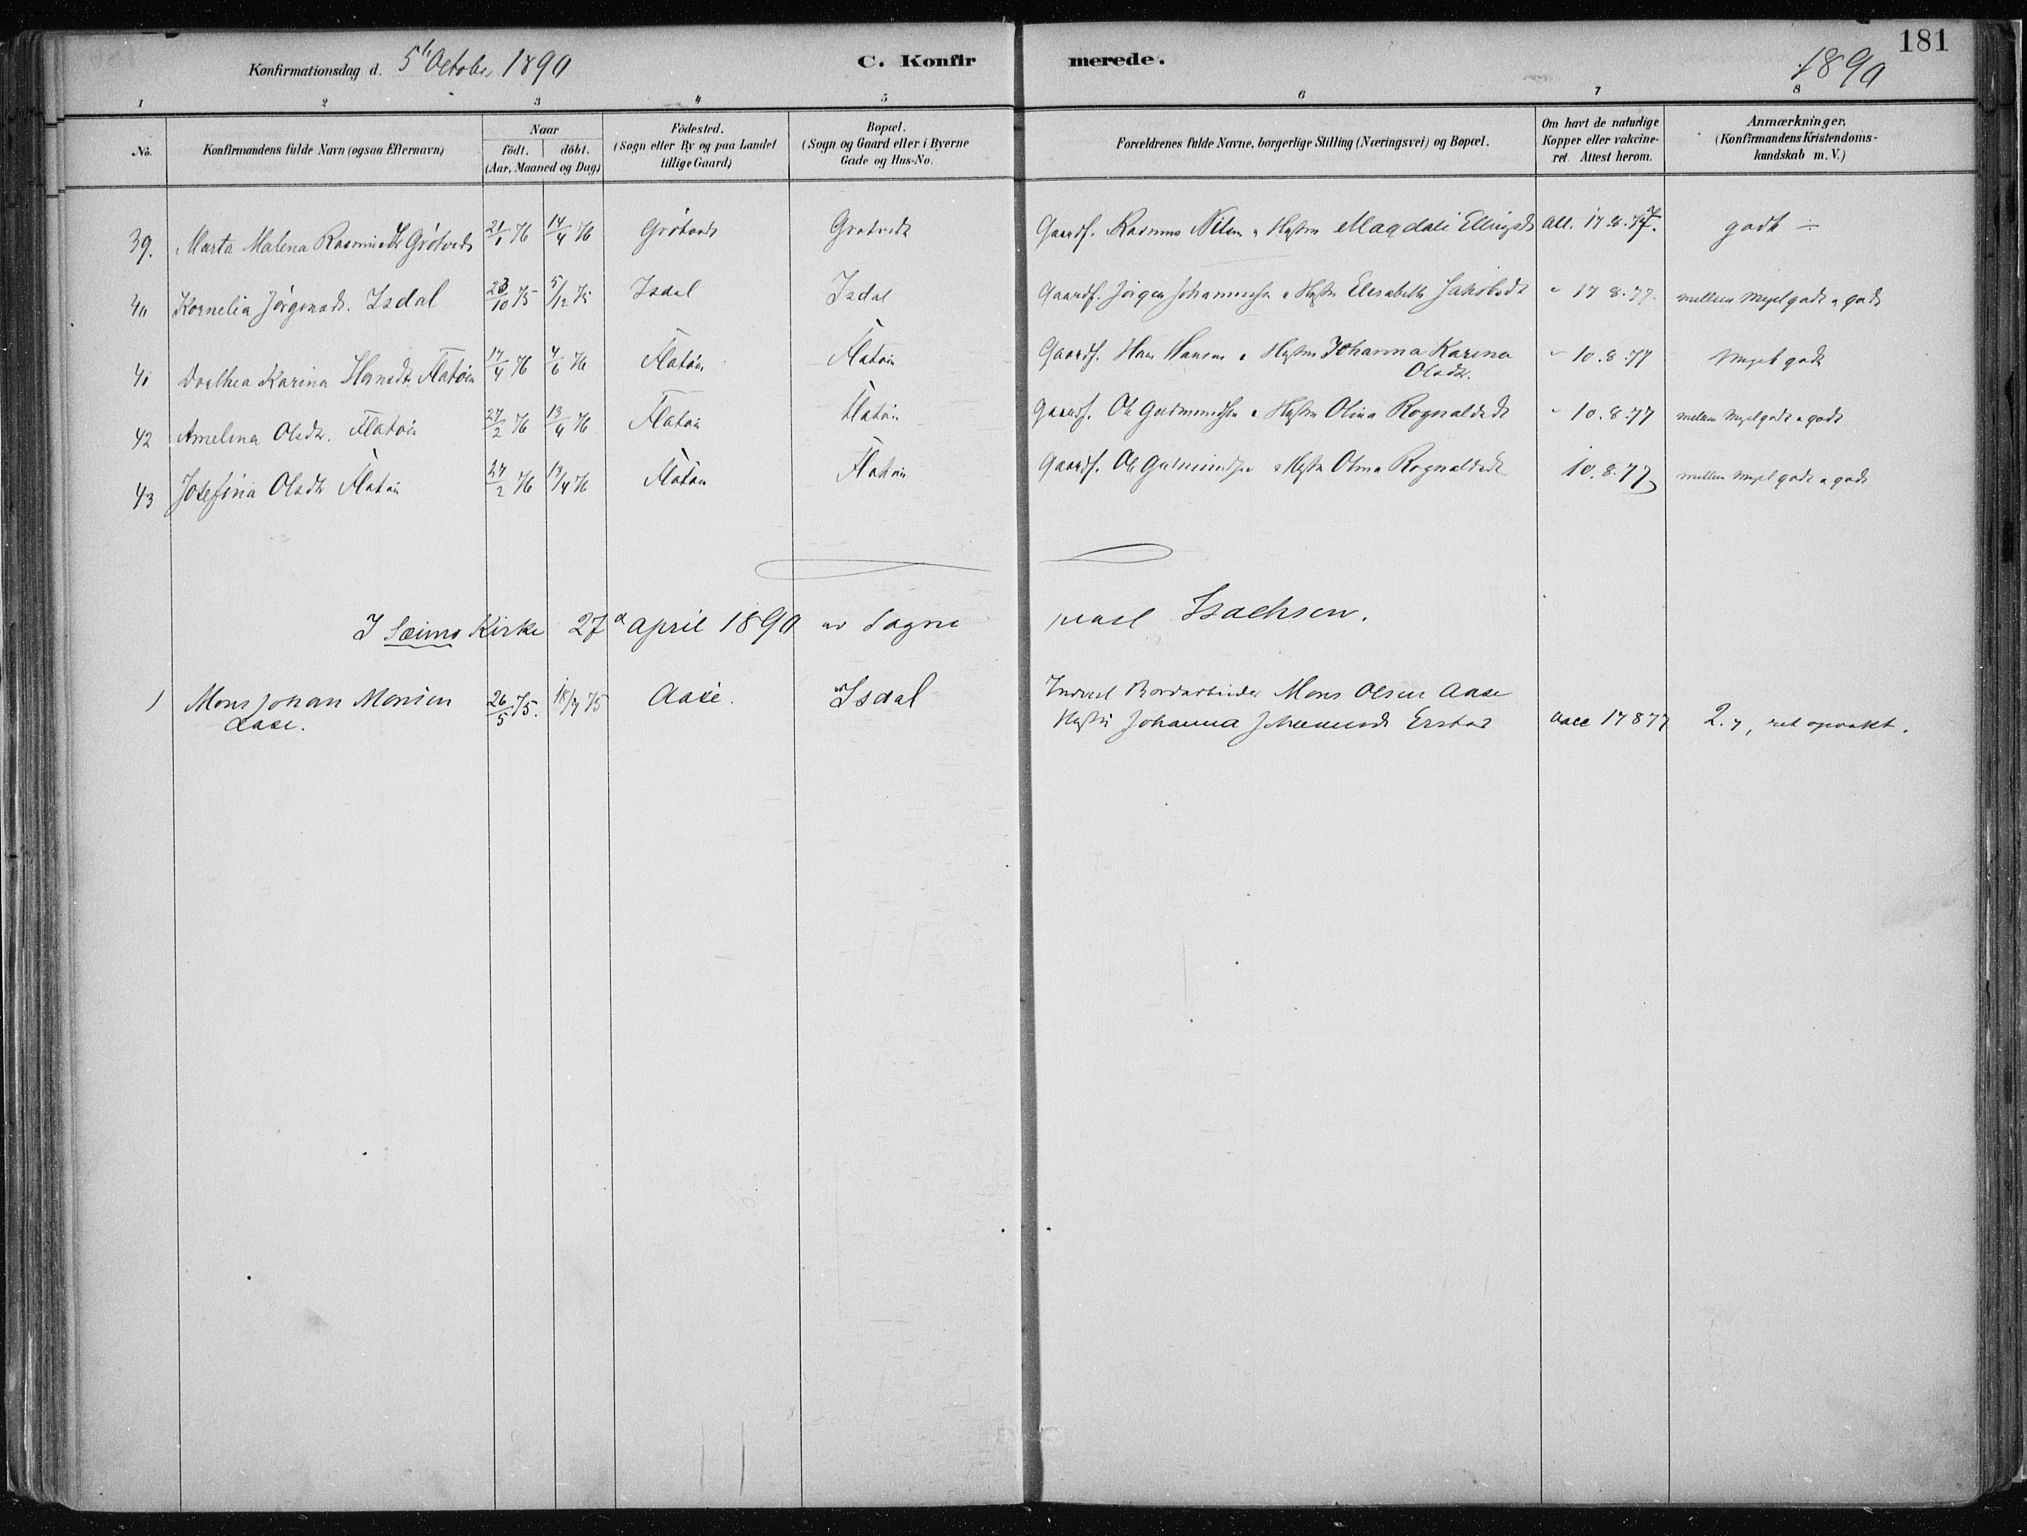 181
Konfirmationsdag d. 5th October 1890 C. Konfirmerede. 1890
1 2 3 4 5 6 7 8
No. Konfirmandens fulde Navn (ogsaa Efternavn) Naar födt. döbt. (Aar, Maaned og Dag) Födested. (Sogn eller By og paa Landet tillige Gaard) Bopæl. (Sogn og Gaard eller i Byerne Gade og Hus-No. Forældrenes fulde Navne, borgerlige Stilling (Næringsvei) og Bopæl. Om havt de naturlige Kopper eller vakcineret. Attest herom. Anmærkninger. (Konfirmandens Kristendomskundskab m. V.)
39. Marta Malena Rasmusdtr Grötvedt 21/1 76 14/4 76 Grötvedt Grotvedt Gaardf. Rasmus Nilsen & Hustru Magdali Ellingsdt Att. 17.8.77. godt
40 Kornelia Jörgensdt. Isdal 23/10 75 5/12 75 Isdal Isdal Gaardf. Jörgen Johannessen & Hustru Elisabeth Jakobsdt " 17 8.77. mellem meget godt & godt
41 Dorthea Karina Hansdtr. Flatöen 17/4 76 4/6 76 Flatöen Flatöen Gaardf. Hans Hansen & Hustru Johanna Karina Olsdtr. " 10.8.77 Meget godt
42 Amelina Olsdtr. Flatöen 27/2 76 13/4 76 Flatöen Flatöen Gaardf. Ole Gudmundsen & Hustru Olina Rognaldsdt " 10.8.77 mellem meget godt & godt
43 Josefina Olsdtr Flatöen 27/2 76 13/4 76 Flatöen Flatöen Gaardf. Ole Gudmundsen & Hustru Olina Rognaldsdt 10.8.77 mellem meget godt & godt
I Sæims Kirke 27d april 1890 av Sognepræst Isachsen.
1 Mons Johan Monsen 26/5 75. 18/7 75 Aase. Isdal Inderst Bordarbeider Mons Olsen Aase
Aase. Hustru Johanna Johannesdt Erstad 17 8 77 2.